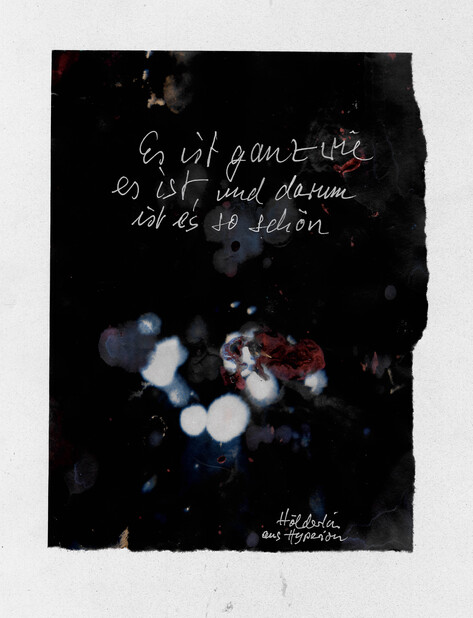 Es ist ganz wie
es ist, und darum
ist es so schön
Hölderlin
aus Hyperion